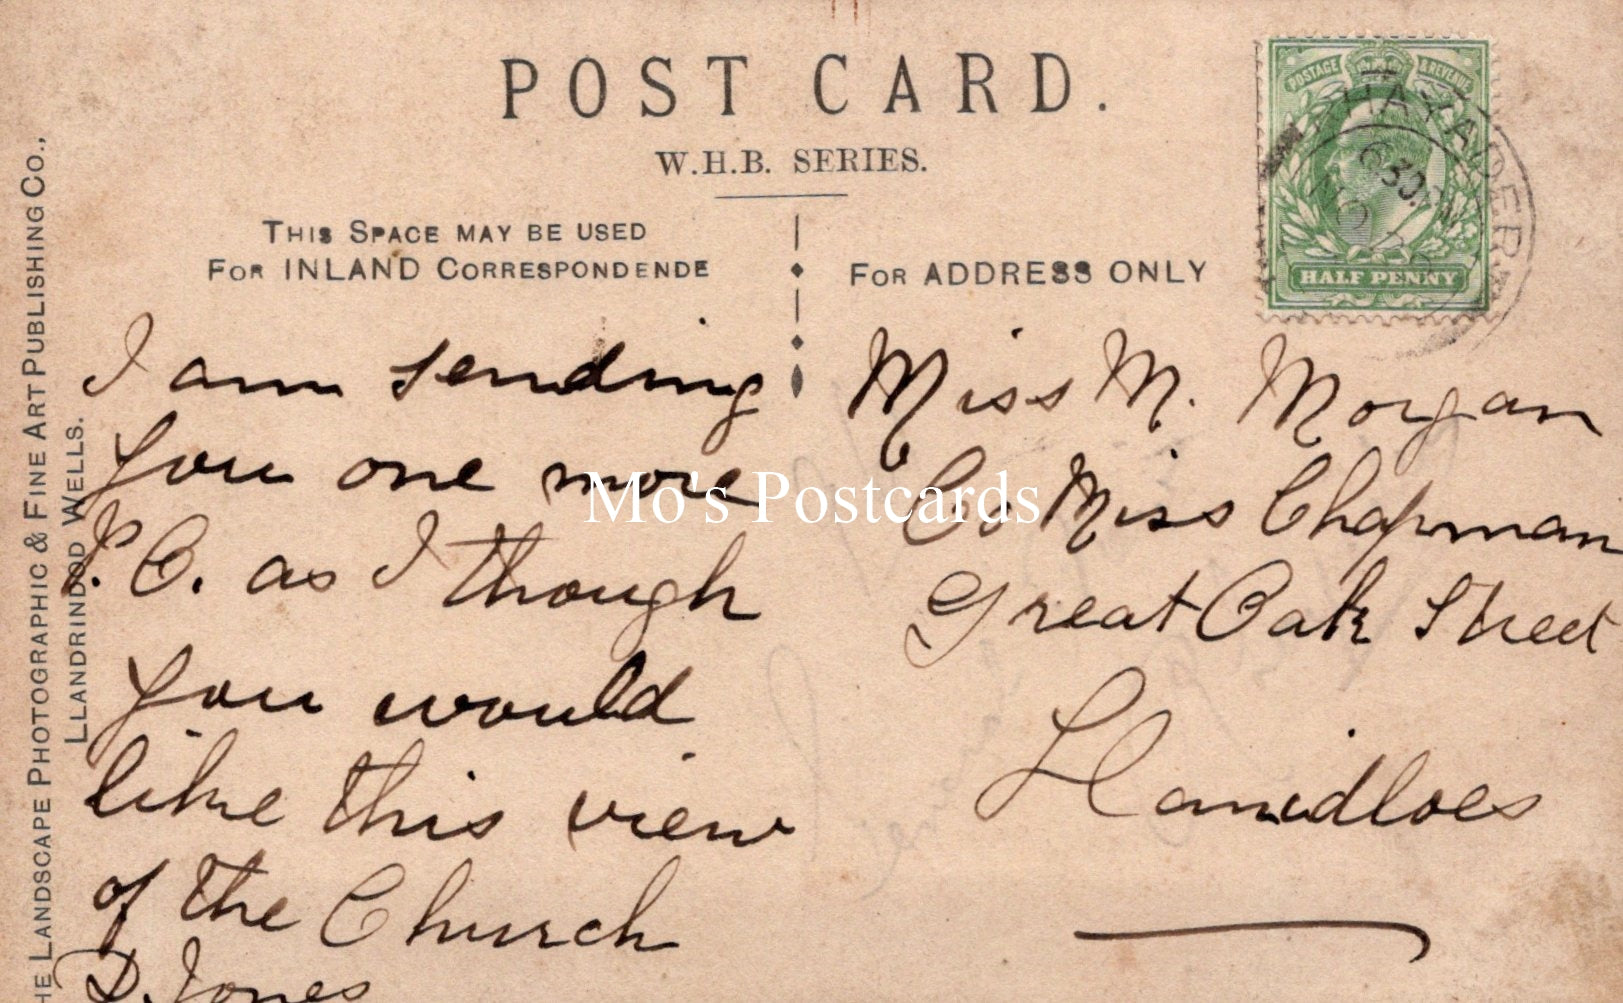 POST CARD.
W.H.B. SERIES.
THIS SPACE MAY BE USED
FOR INLAND CORRESPONDENDE
FOR ADDRESS ONLY
HE LANDSCAPE PHOTOGRAPHIC & FINE ART PUBLISHING CO.,
LLANDRINDOD WELLS.
POSTAGE & REVENUE
HALF PENNY
RHAYADER
6 30 PM
NO
I am sending
you one more
P.C. as I though
you would
like this view
of the Church
D. Jones
Miss M. Morgan
Co Miss Chapman
Great Oak Street
Llanidloes
Mo's Postcards